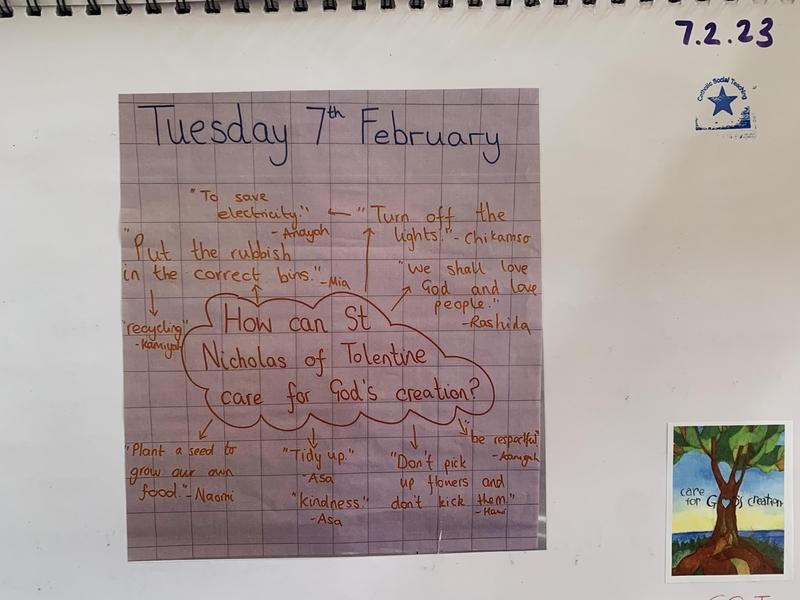 7.2.23
Catholic Social Teaching
Tuesday 7th February
"To save
electricity."
- Anayah
"Turn off the
lights!" - Chikamso
"Put the rubbish
in the correct bins." - Mia
"recycling"
- Kamiyah
"We shall love
God and love
people."
- Rashida
How can St
Nicholas of Tolentine
care for God's creation?
"Plant a seed to
grow our own
food." - Naomi
"Tidy up."
- Asa
"kindness."
- Asa
"Don't pick
up flowers and
don't kick them."
"be respectful"
care
for God's creation